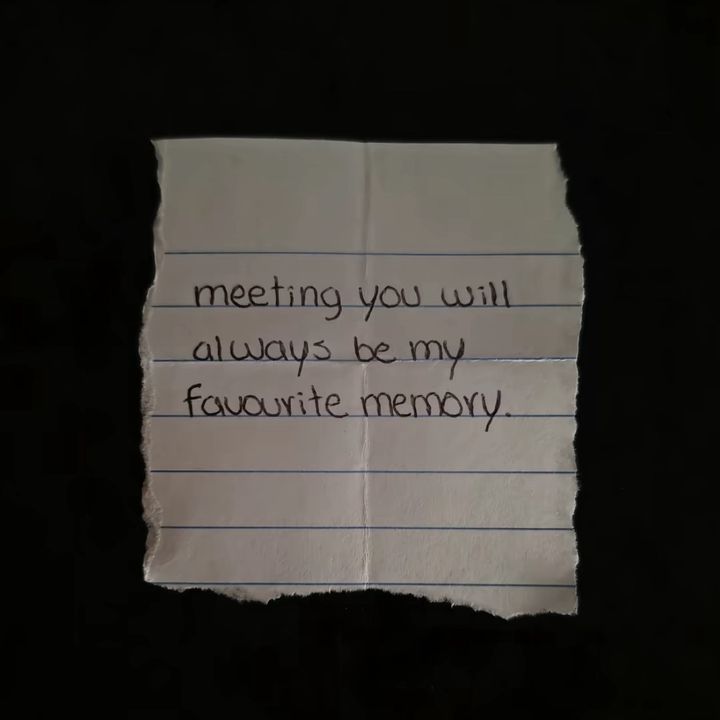 meeting you will
always be my
favourite memory.